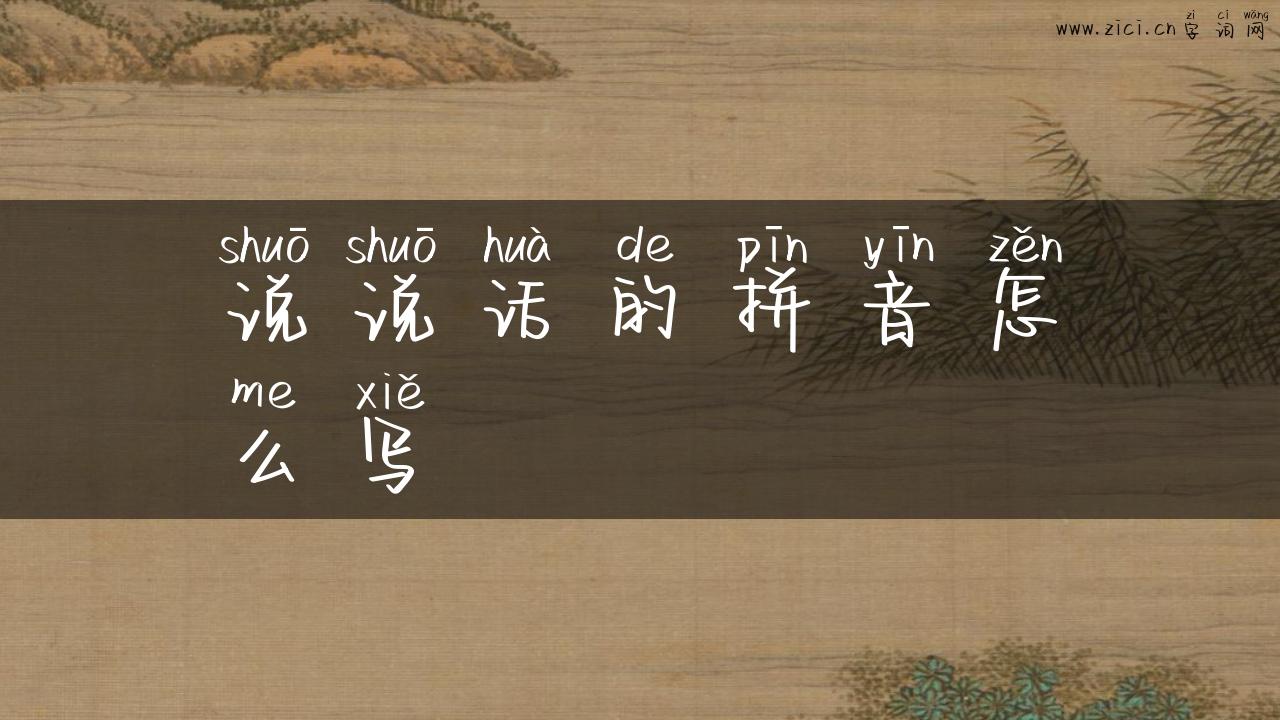 zì cí wǎng
www.zici.cn 字词网
shuō shuō huà de pīn yīn zěn
说说话的拼音怎
me xiě
么写